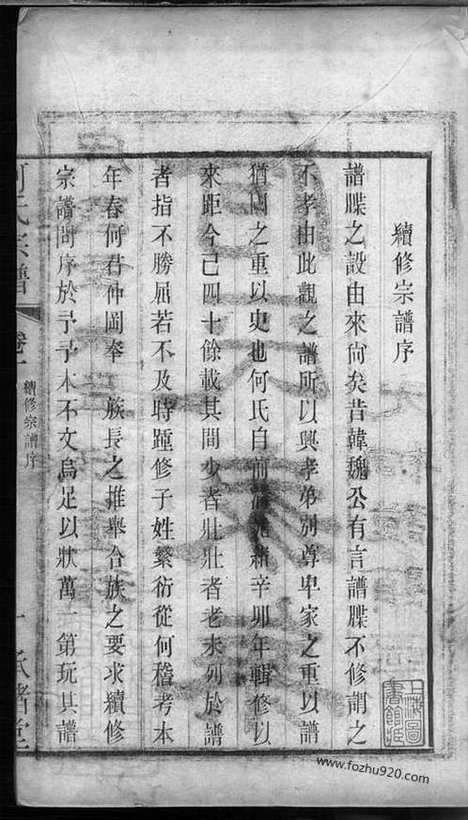 續修宗譜序
譜牒之設由來尙矣昔韓魏公有言譜牒不修謂之
不孝由此觀之譜所以興孝弟別尊卑家之重以譜
猶國之重以史也何氏自前清光緒辛卯年輯修以
來距今已四十餘載其間少者壯壯者老未列於譜
者指不勝屈若不及時踵修子姓繁衍從何稽考本
年春何君仲岡奉 族長之推舉合族之要求續修
宗譜問序於予予本不文烏足以狀萬一第玩其譜
何氏宗譜 卷一 續修宗譜序 一 堂
上海圖書館藏
www.fozhu920.com